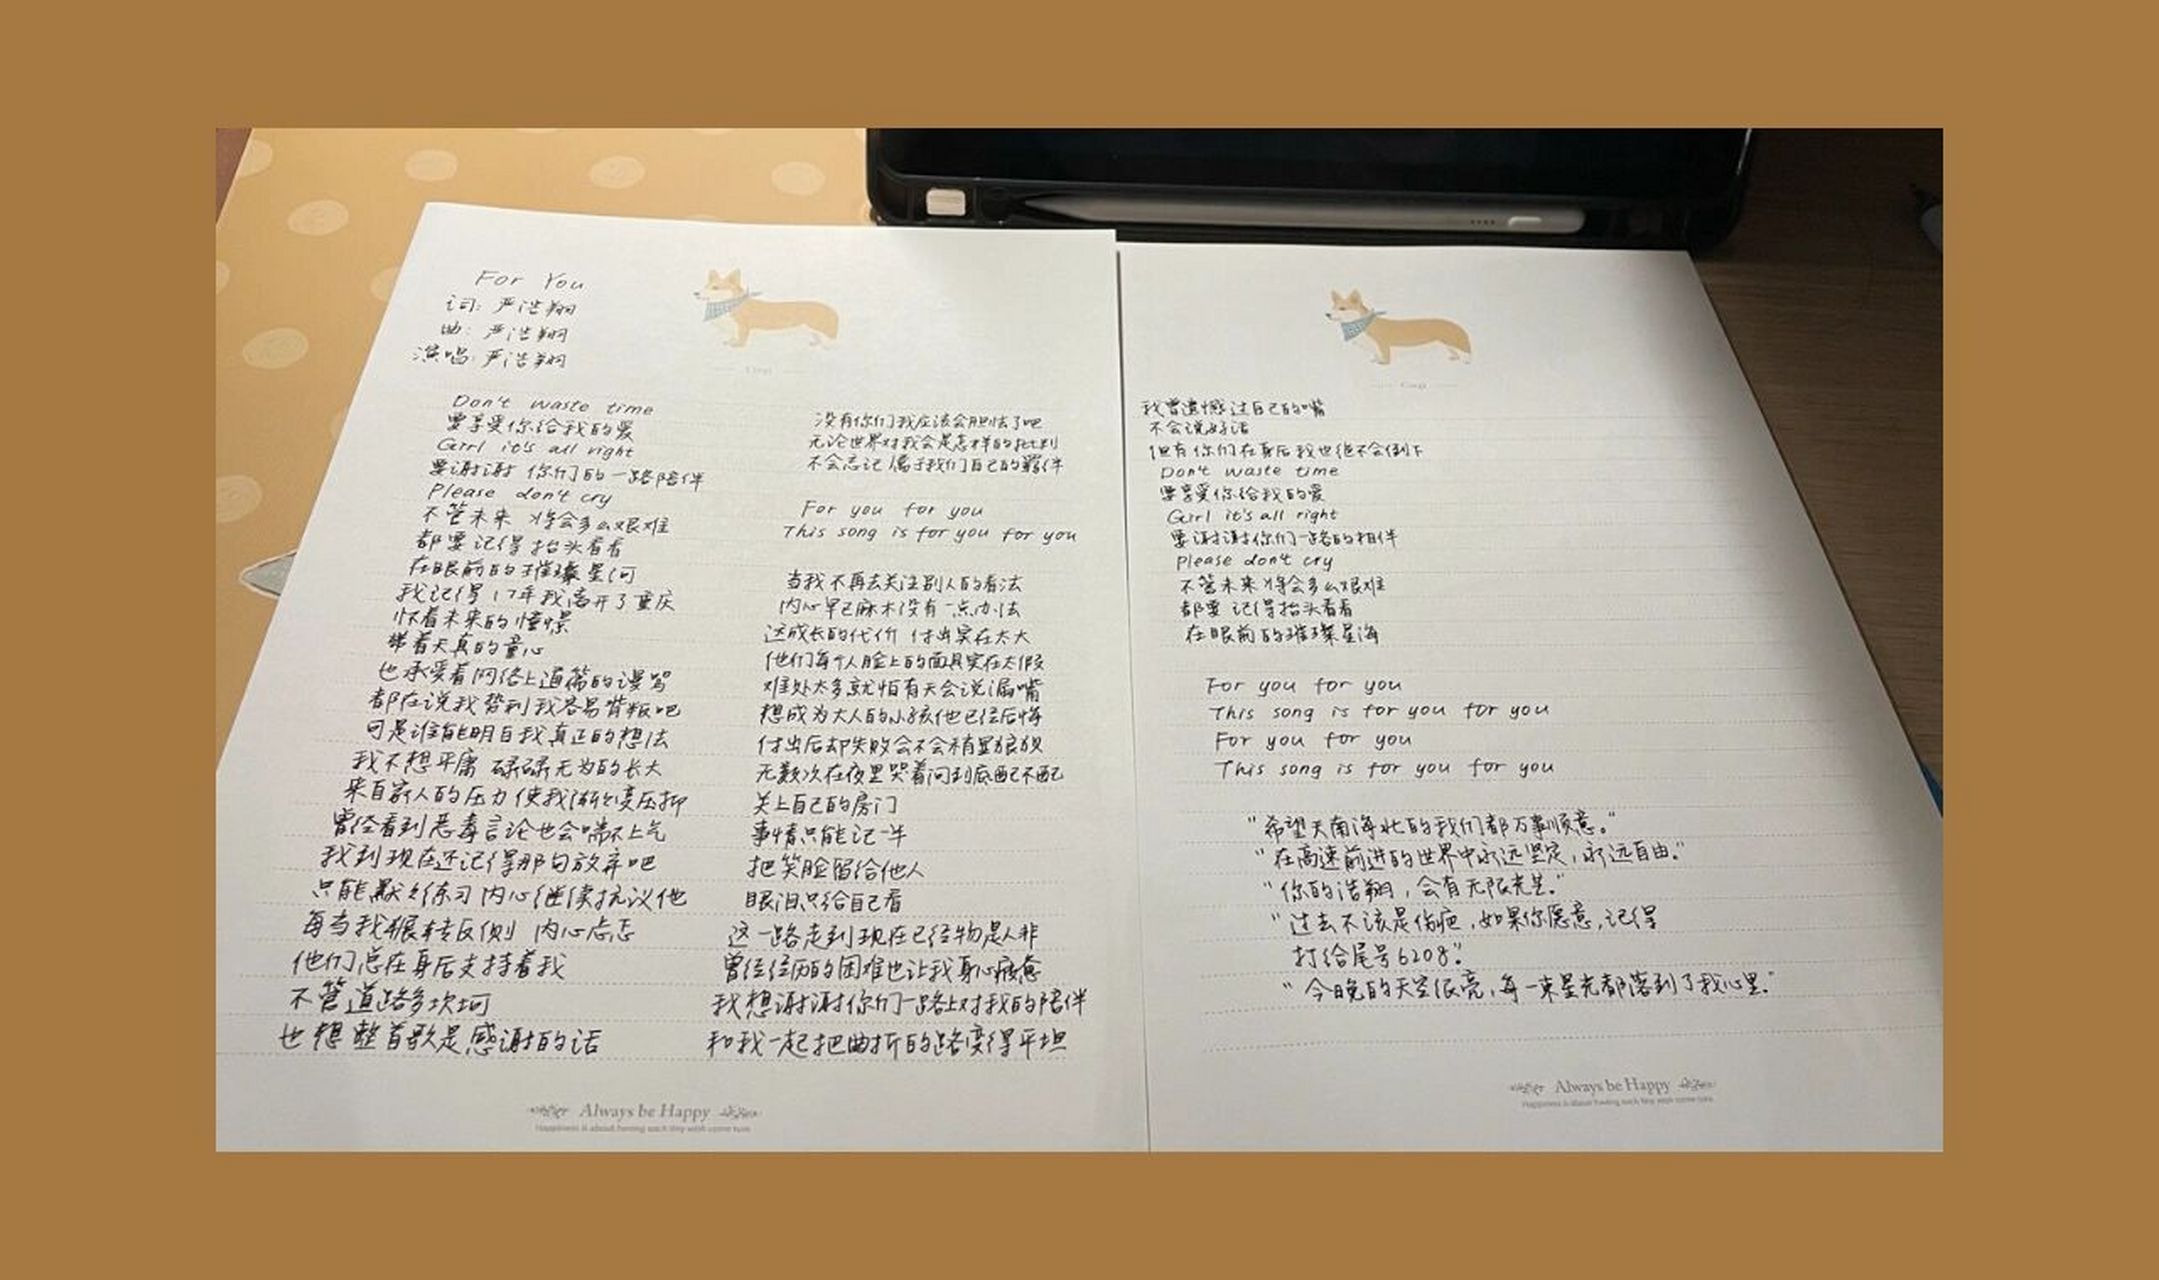 For You
词: 严浩翔
曲: 严浩翔
演唱: 严浩翔
Corgi
Don't waste time
要享受你给我的爱
Girl it's all right
要谢谢 你们的一路陪伴
Please don't cry
不管未来 将会多么艰难
都要记得抬头看看
在眼前的璀璨星河
我记得17年我离开了重庆
怀着未来的憧憬
带着天真的童心
也承受着网络上通篇的谩骂
都在说我势利我容易背叛吧
可是谁能明白我真正的想法
我不想平庸 碌碌无为的长大
来自家人的压力使我渐渐变压抑
曾经看到恶毒言论也会喘不上气
我到现在还记得那句放弃吧
只能默默练习内心继续抗议他
每当我辗转反侧 内心忐忑
他们总在身后支持着我
不管道路多坎坷
也想整首歌是感谢的话
没有你们我应该会胆怯了吧
无论世界对我会是怎样的批判
不会忘记属于我们自己的羁绊
For you for you
This song is for you for you
当我不再去关注别人的看法
内心早已麻木没有一点办法
这成长的代价 付出实在太大
他们每个人脸上的面具实在太假
难处太多就怕有天会说漏嘴
想成为大人的小孩他已经后悔
付出后却失败会不会稍显狼狈
无数次在夜里哭着问到底配不配
关上自己的房门
事情只能记一半
把笑脸留给他人
眼泪只给自己看
这一路走到现在已经物是人非
曾经经历的困难也让我身心疲惫
我想谢谢你们一路上对我的陪伴
和我一起把曲折的路变得平坦
Always be Happy
Corgi
我曾遗憾过自己的嘴
不会说好话
但有你们在身后我也绝不会倒下
Don't waste time
要享受你给我的爱
Girl it's all right
要谢谢你们一路的相伴
Please don't cry
不管未来将会多么艰难
都要记得抬头看看
在眼前的璀璨星海
For you for you
This song is for you for you
For you for you
This song is for you for you
"希望天南海北的我们都万事顺意。"
"在高速前进的世界中永远坚定,永远自由。"
"你的浩翔,会有无限光芒。"
"过去不该是伤疤,如果你愿意,记得
打给尾号6208。"
"今晚的天空很亮,每一束星光都落到了我心里。"
Always be Happy